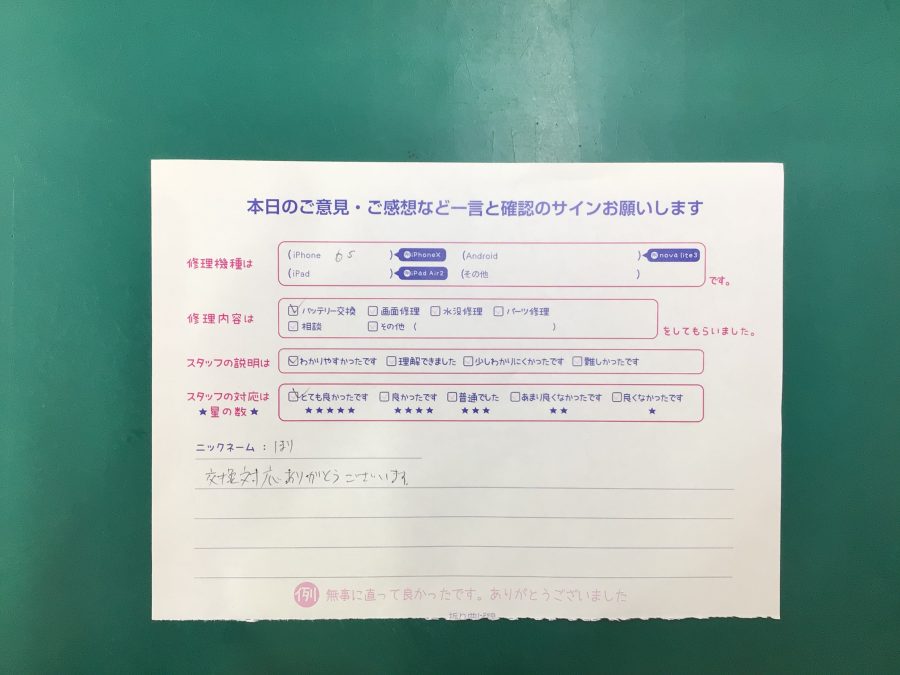 本日のご意見・ご感想など一言と確認のサインお願いします
修理機種は (iPhone 6s ) 例iPhoneX (Android ) 例nova lite3
(iPad ) 例iPad Air2 (その他 ) です。
修理内容は バッテリー交換 画面修理 水没修理 パーツ修理
相談 その他 ( ) をしてもらいました。
スタッフの説明は わかりやすかったです 理解できました 少しわかりにくかったです 難しかったです
スタッフの対応は とても良かったです 良かったです 普通でした あまり良くなかったです 良くなかったです
★星の数★ ★★★★★ ★★★★ ★★★ ★★ ★
ニックネーム : ほり
交換対応ありがとうございます
例 無事に直って良かったです。ありがとうございました